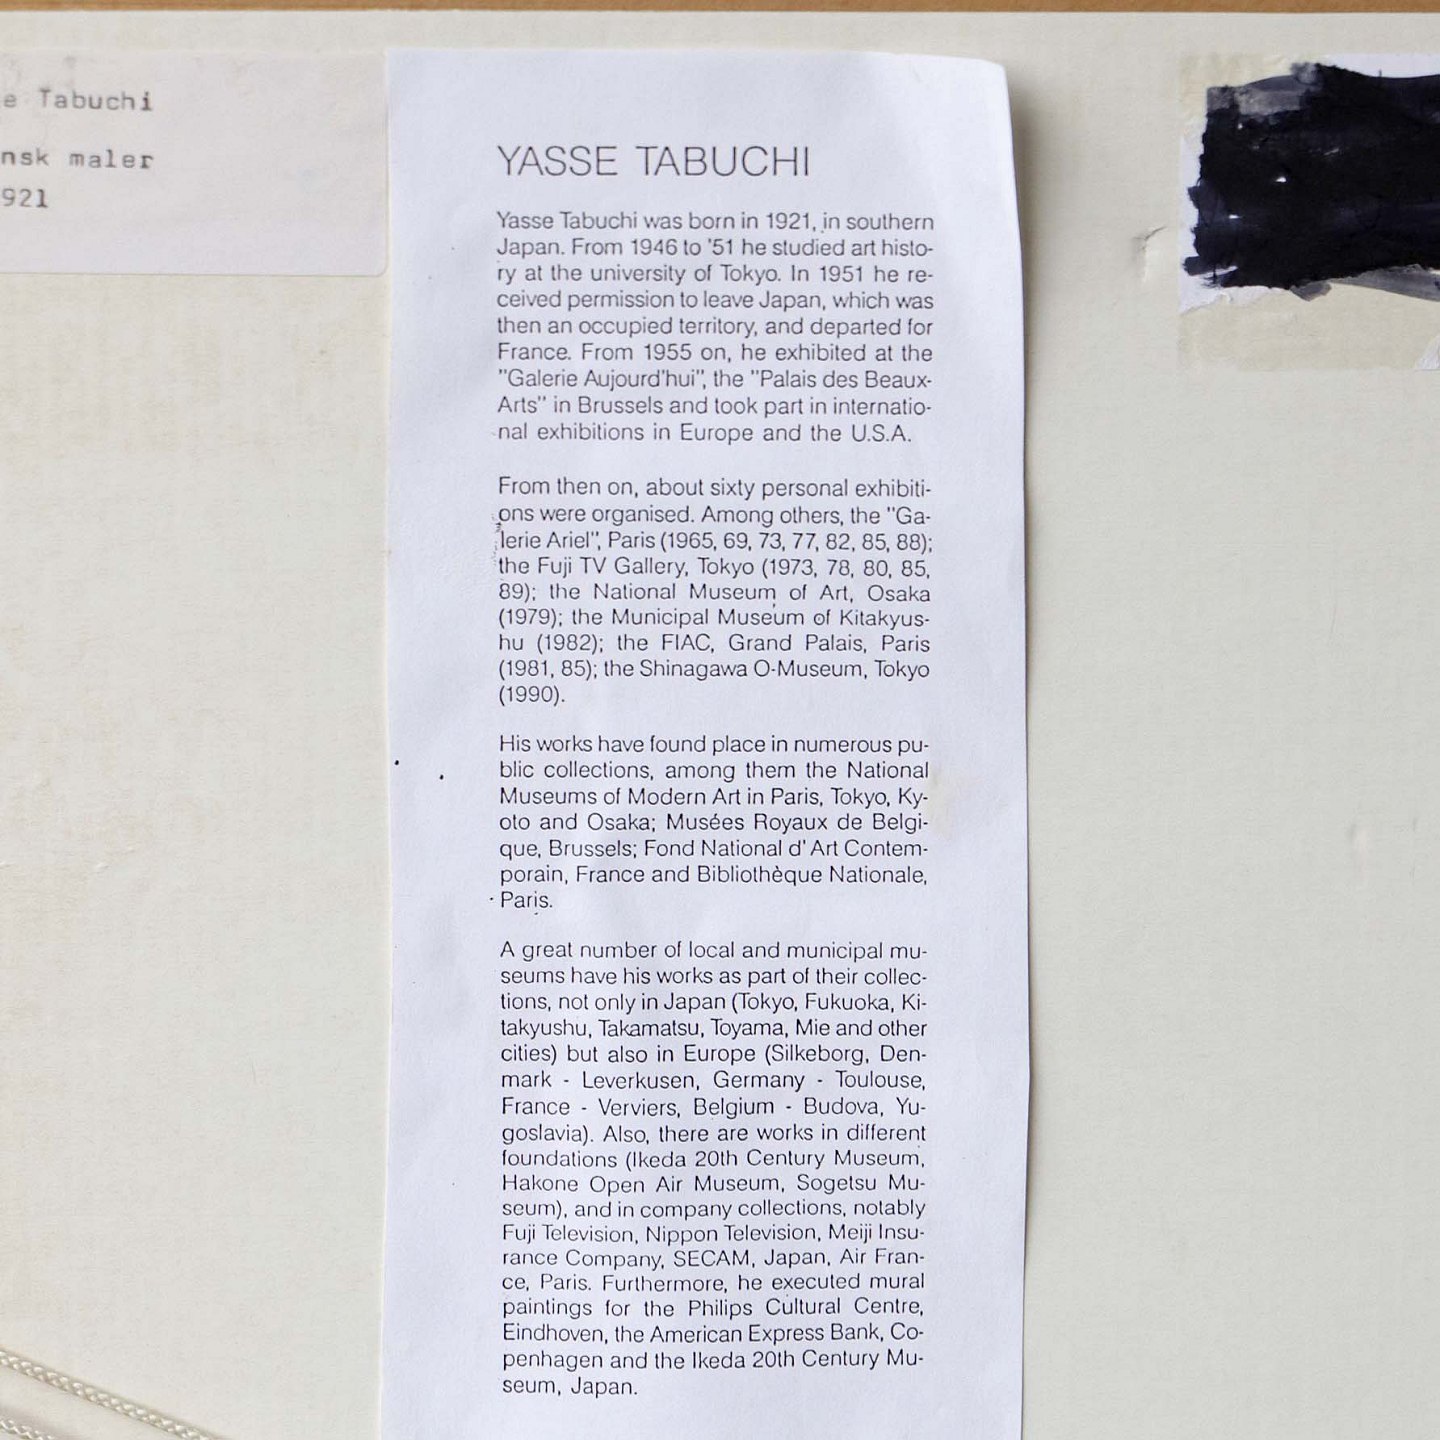 e Tabuchi
nsk maler
921
YASSE TABUCHI
Yasse Tabuchi was born in 1921, in southern
Japan. From 1946 to '51 he studied art histo-
ry at the university of Tokyo. In 1951 he re-
ceived permission to leave Japan, which was
then an occupied territory, and departed for
France. From 1955 on, he exhibited at the
"Galerie Aujourd'hui", the "Palais des Beaux-
Arts" in Brussels and took part in internatio-
nal exhibitions in Europe and the U.S.A.
From then on, about sixty personal exhibiti-
ons were organised. Among others, the "Ga-
lerie Ariel", Paris (1965, 69, 73, 77, 82, 85, 88);
the Fuji TV Gallery, Tokyo (1973, 78, 80, 85,
89); the National Museum of Art, Osaka
(1979); the Municipal Museum of Kitakyus-
hu (1982); the FIAC, Grand Palais, Paris
(1981, 85); the Shinagawa O-Museum, Tokyo
(1990).
His works have found place in numerous pu-
blic collections, among them the National
Museums of Modern Art in Paris, Tokyo, Ky-
oto and Osaka; Musées Royaux de Belgi-
que, Brussels; Fond National d'Art Contem-
porain, France and Bibliothèque Nationale,
Paris.
A great number of local and municipal mu-
seums have his works as part of their collec-
tions, not only in Japan (Tokyo, Fukuoka, Ki-
takyushu, Takamatsu, Toyama, Mie and other
cities) but also in Europe (Silkeborg, Den-
mark - Leverkusen, Germany - Toulouse,
France - Verviers, Belgium - Budova, Yu-
goslavia). Also, there are works in different
foundations (Ikeda 20th Century Museum,
Hakone Open Air Museum, Sogetsu Mu-
seum), and in company collections, notably
Fuji Television, Nippon Television, Meiji Insu-
rance Company, SECAM, Japan, Air Fran-
ce, Paris. Furthermore, he executed mural
paintings for the Philips Cultural Centre,
Eindhoven, the American Express Bank, Co-
penhagen and the Ikeda 20th Century Mu-
seum, Japan.